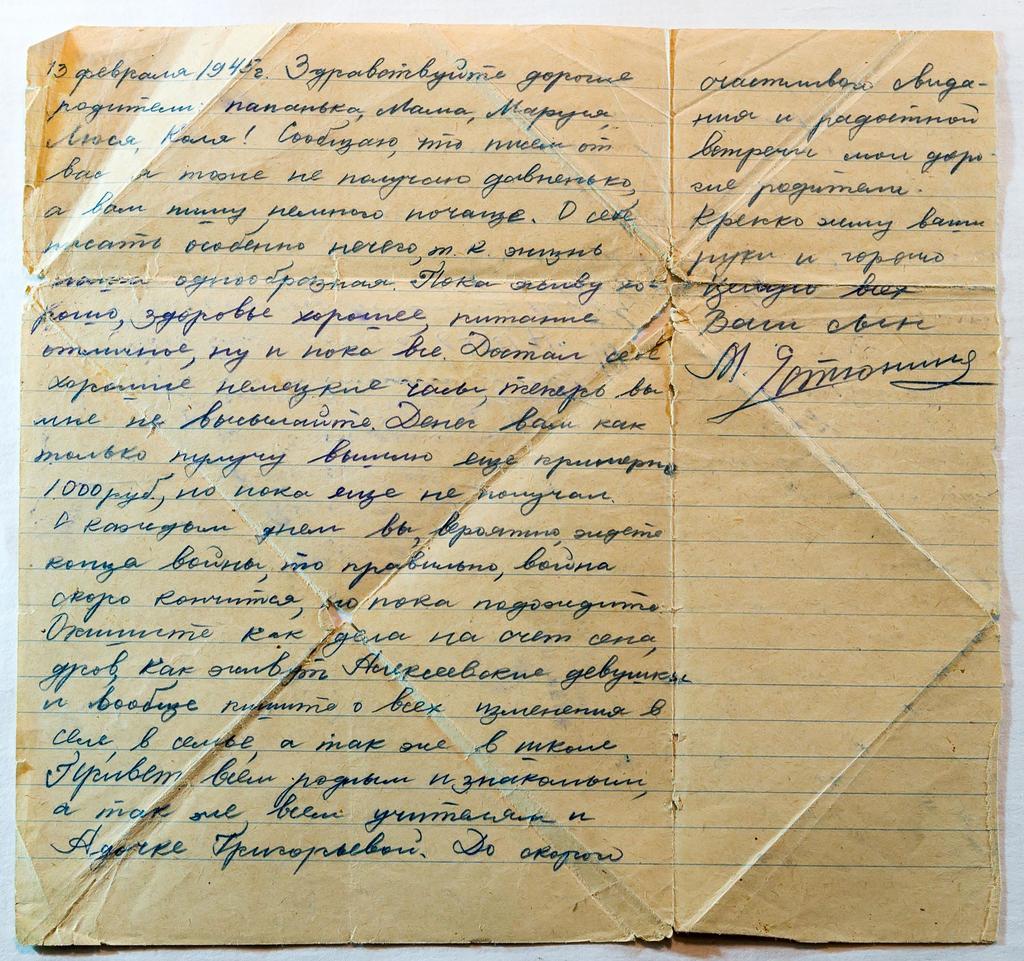 13 февраля 1945г. Здравствуйте дорогие
родители: папанька, Мама, Маруся,
Люся, Коля! Сообщаю, что писем от
вас я тоже не получаю давненько,
а вам пишу немного почаще. О себе
писать особенно нечего, т.к. жизнь
наша однообразная. Пока живу хо-
рошо, здоровье хорошее, питание
отличное, ну и пока все. Достал себе
хорошие немецкие часы, теперь вы
мне не высылайте. Денег вам как
только получу вышлю еще примерно
1000 руб., но пока еще не получал.
С каждым днем вы, вероятно, ждете
конца войны, то правильно, война
скоро кончится, но пока подождите.
Опишите как дела на счет сена,
дров, как живут Алексеевские девушки
и вообще пишите о всех изменения в
селе, в семье, а так же в школе
Привет всем родным и знакомым,
а так же всем учителям и
Адочке Григорьевой. До скорой
счастливой свида-
ния и радостной
встречи мои доро-
гие родители.
Крепко жму ваши
руки и горячо
целую всех
Ваш сын
М.